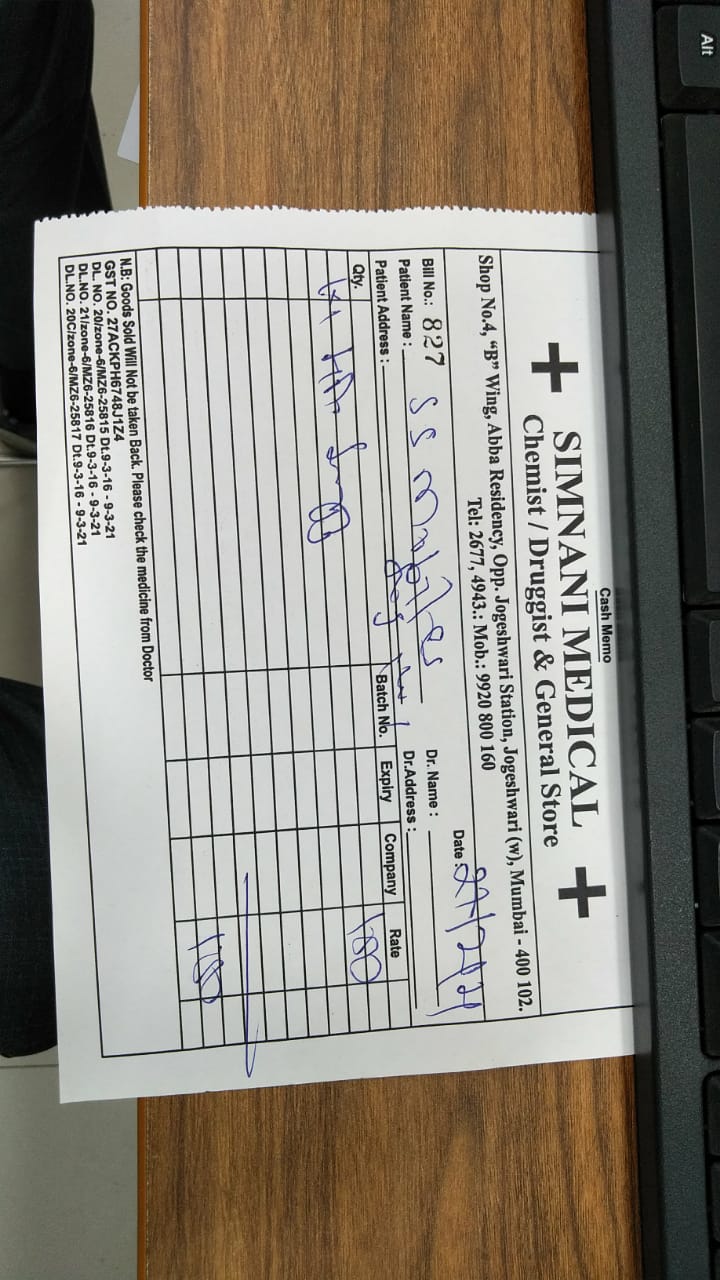 Alt
Cash Memo
SIMNANI MEDICAL
Chemist / Druggist & General Store
Shop No.4, "B" Wing, Abba Residency, Opp. Jogeshwari Station, Jogeshwari (w), Mumbai - 400 102.
Tel: 2677, 4943.: Mob.: 9920 800 160
Date :
Bill No.: 827 Dr. Name :
Patient Name : Dr.Address :
Patient Address :
Qty. Batch No. Expiry Company Rate
N.B: Goods Sold Will Not be taken Back. Please check the medicine from Doctor
GST NO. 27ACKPH6748J1Z4
DL. NO. 20/zone-6/MZ6-25815 Dt.9-3-16 - 9-3-21
DL.NO. 21/zone-6/MZ6-25816 Dt.9-3-16 - 9-3-21
DL.NO. 20C/zone-6/MZ6-25817 Dt.9-3-16 - 9-3-21